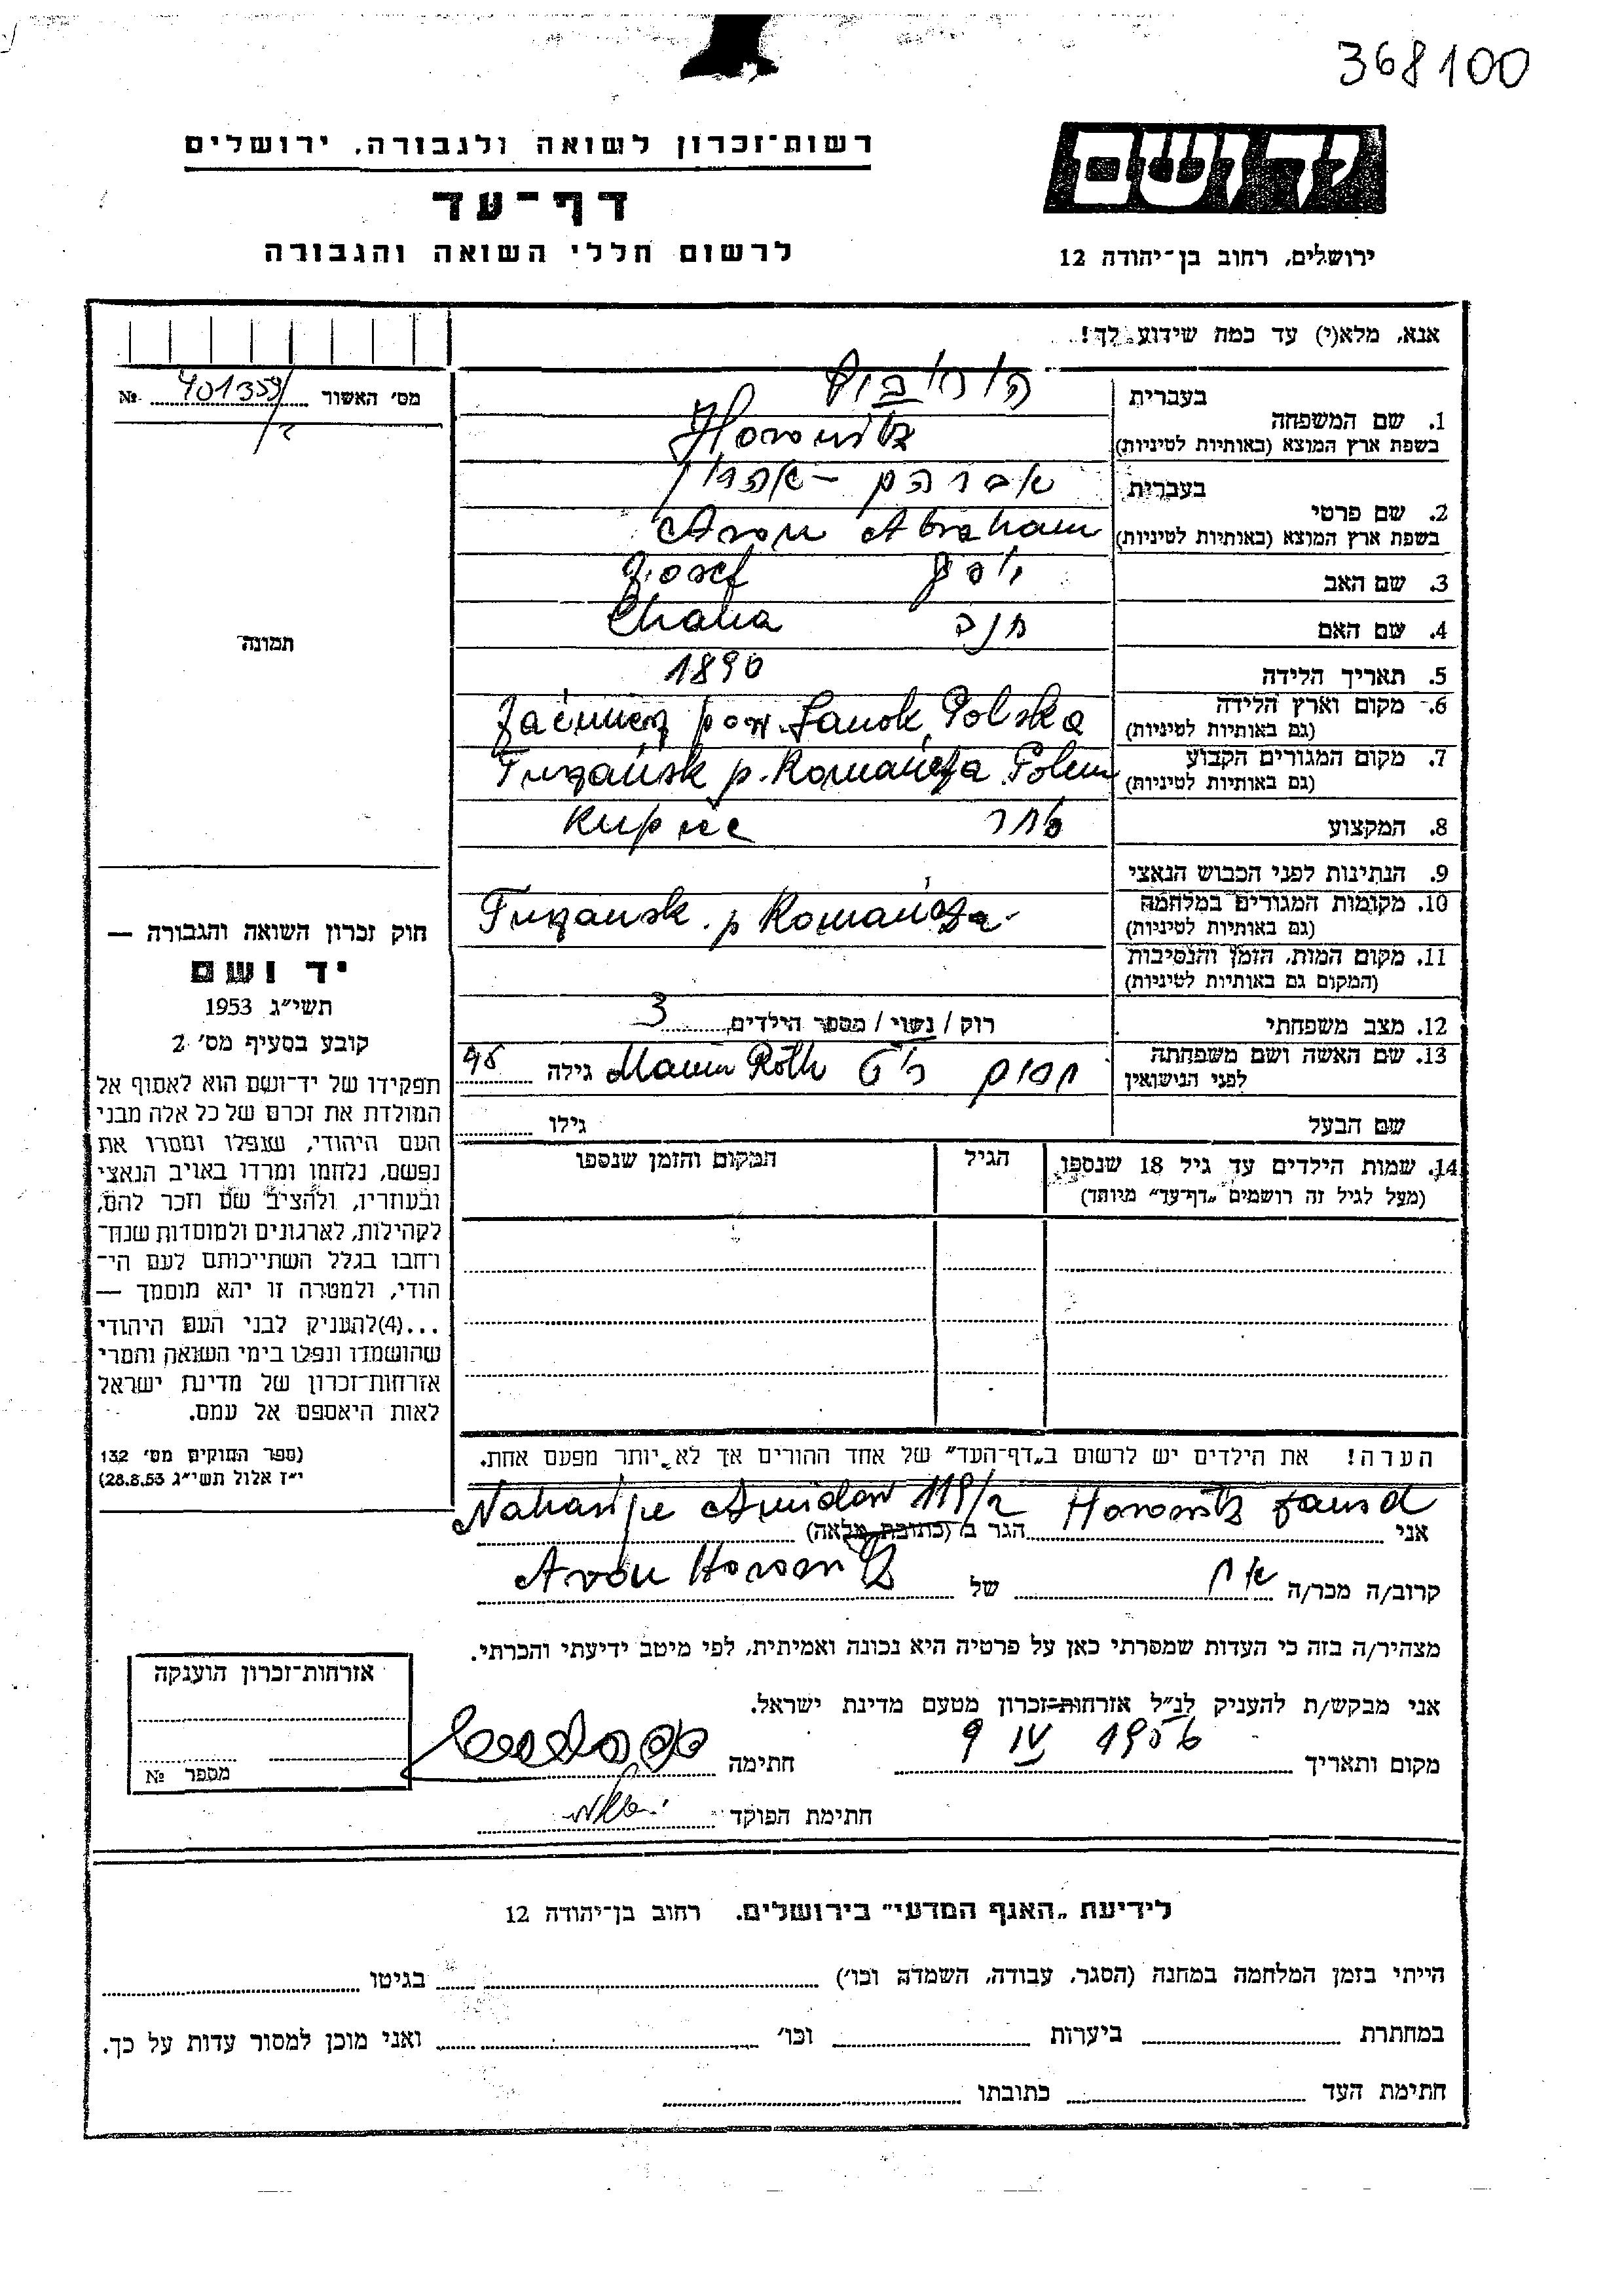 368100
רשות־זכרון לשואה ולגבורה, ירושלים
יד ושם
דף־עד
לרשום חללי השואה והגבורה
ירושלים, רחוב בן־יהודה 12
אנא, מלא(י) עד כמה שידוע לך!
מס׳ האשור 401359/ №
1. שם המשפחה
בעברית הורוביץ
בשפת ארץ המוצא (באותיות לטיניות) Horowitz
2. שם פרטי
בעברית אברהם – אהרון
בשפת ארץ המוצא (באותיות לטיניות) Aron Abraham
3. שם האב יוסף Josef
4. שם האם חנה Chana
5. תאריך הלידה 1890
6. מקום וארץ הלידה
(גם באותיות לטיניות) pow. Sanok, Polska
7. מקום המגורים הקבוע
(גם באותיות לטיניות) p. Komańcza
8. המקצוע סוחר Kupiec
9. הנתינות לפני הכבוש הנאצי
10. מקומות המגורים במלחמה
(גם באותיות לטיניות) p Komańcza
11. מקום המות, הזמן והנסיבות
(המקום גם באותיות לטיניות)
12. מצב משפחתי רוק / נשוי / מספר הילדים 3
13. שם האשה ושם משפחתה
לפני הנישואין Roth גילה
שם הבעל גילו
תמונה
חוק זכרון השואה והגבורה —
יד ושם
תשי״ג 1953
קובע בסעיף מס׳ 2
תפקידו של יד־ושם הוא לאסוף אל
המולדת את זכרם של כל אלה מבני
העם היהודי, שנפלו ומסרו את
נפשם, נלחמו ומרדו באויב הנאצי
ובעוזריו, ולהציב שם וזכר להם,
לקהילות, לארגונים ולמוסדות שנח־
רבו בגלל השתייכותם לעם הי־
הודי, ולמטרה זו יהא מוסמך —
...(4)להעניק לבני העם היהודי
שהושמדו ונפלו בימי השואה והמרי
אזרחות־זכרון של מדינת ישראל
לאות היאספם אל עמם.
(ספר החוקים מס׳ 132
י״ז אלול תשי״ג 28.8.53)
14. שמות הילדים עד גיל 18 שנספו
(מעל לגיל זה רושמים „דף־עד״ מיוחד)
הגיל
המקום והזמן שנספו
הערה! את הילדים יש לרשום ב„דף־העד״ של אחד ההורים אך לא יותר מפעם אחת.
אני Horowitz הגר ב (כתובת מלאה) Amidar 118/2
קרוב/ה מכר/ה אח של Aron Horowitz
מצהיר/ה בזה כי העדות שמסרתי כאן על פרטיה היא נכונה ואמיתית, לפי מיטב ידיעתי והכרתי.
אני מבקש/ת להעניק לנ״ל אזרחות־זכרון מטעם מדינת ישראל.
מקום ותאריך 9 IV 1956 חתימה
חתימת הפוקד
אזרחות־זכרון הוענקה
מספר №
לידיעת „האגף המדעי״ בירושלים. רחוב בן־יהודה 12
הייתי בזמן המלחמה במחנה (הסגר, עבודה, השמדה וכו׳) בגיטו
במחתרת ביערות וכו׳ ואני מוכן למסור עדות על כך.
חתימת העד כתובתו